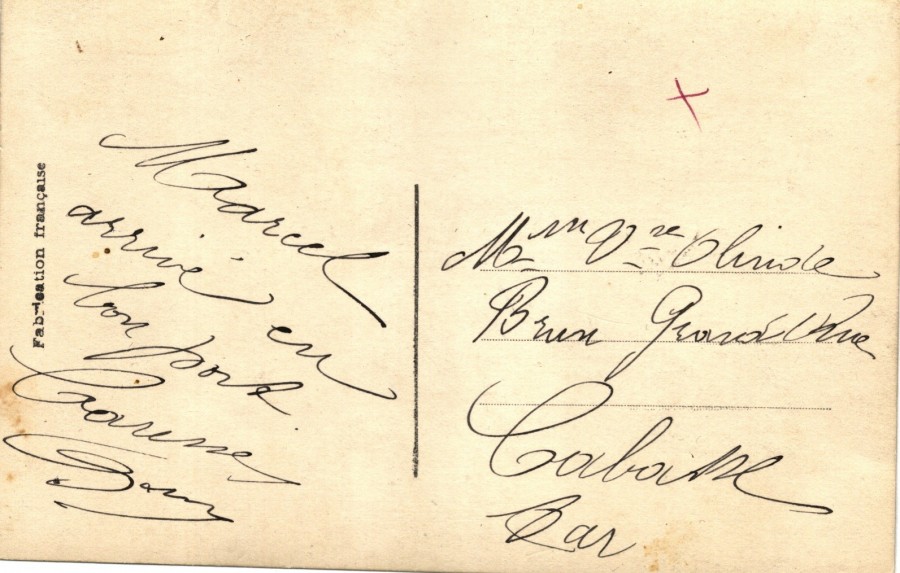 Fabrication française
Marcel
arrivé en
bon port
Caresses
Mme Vve Olinde
Brun Grande Rue
Cabasse
Var